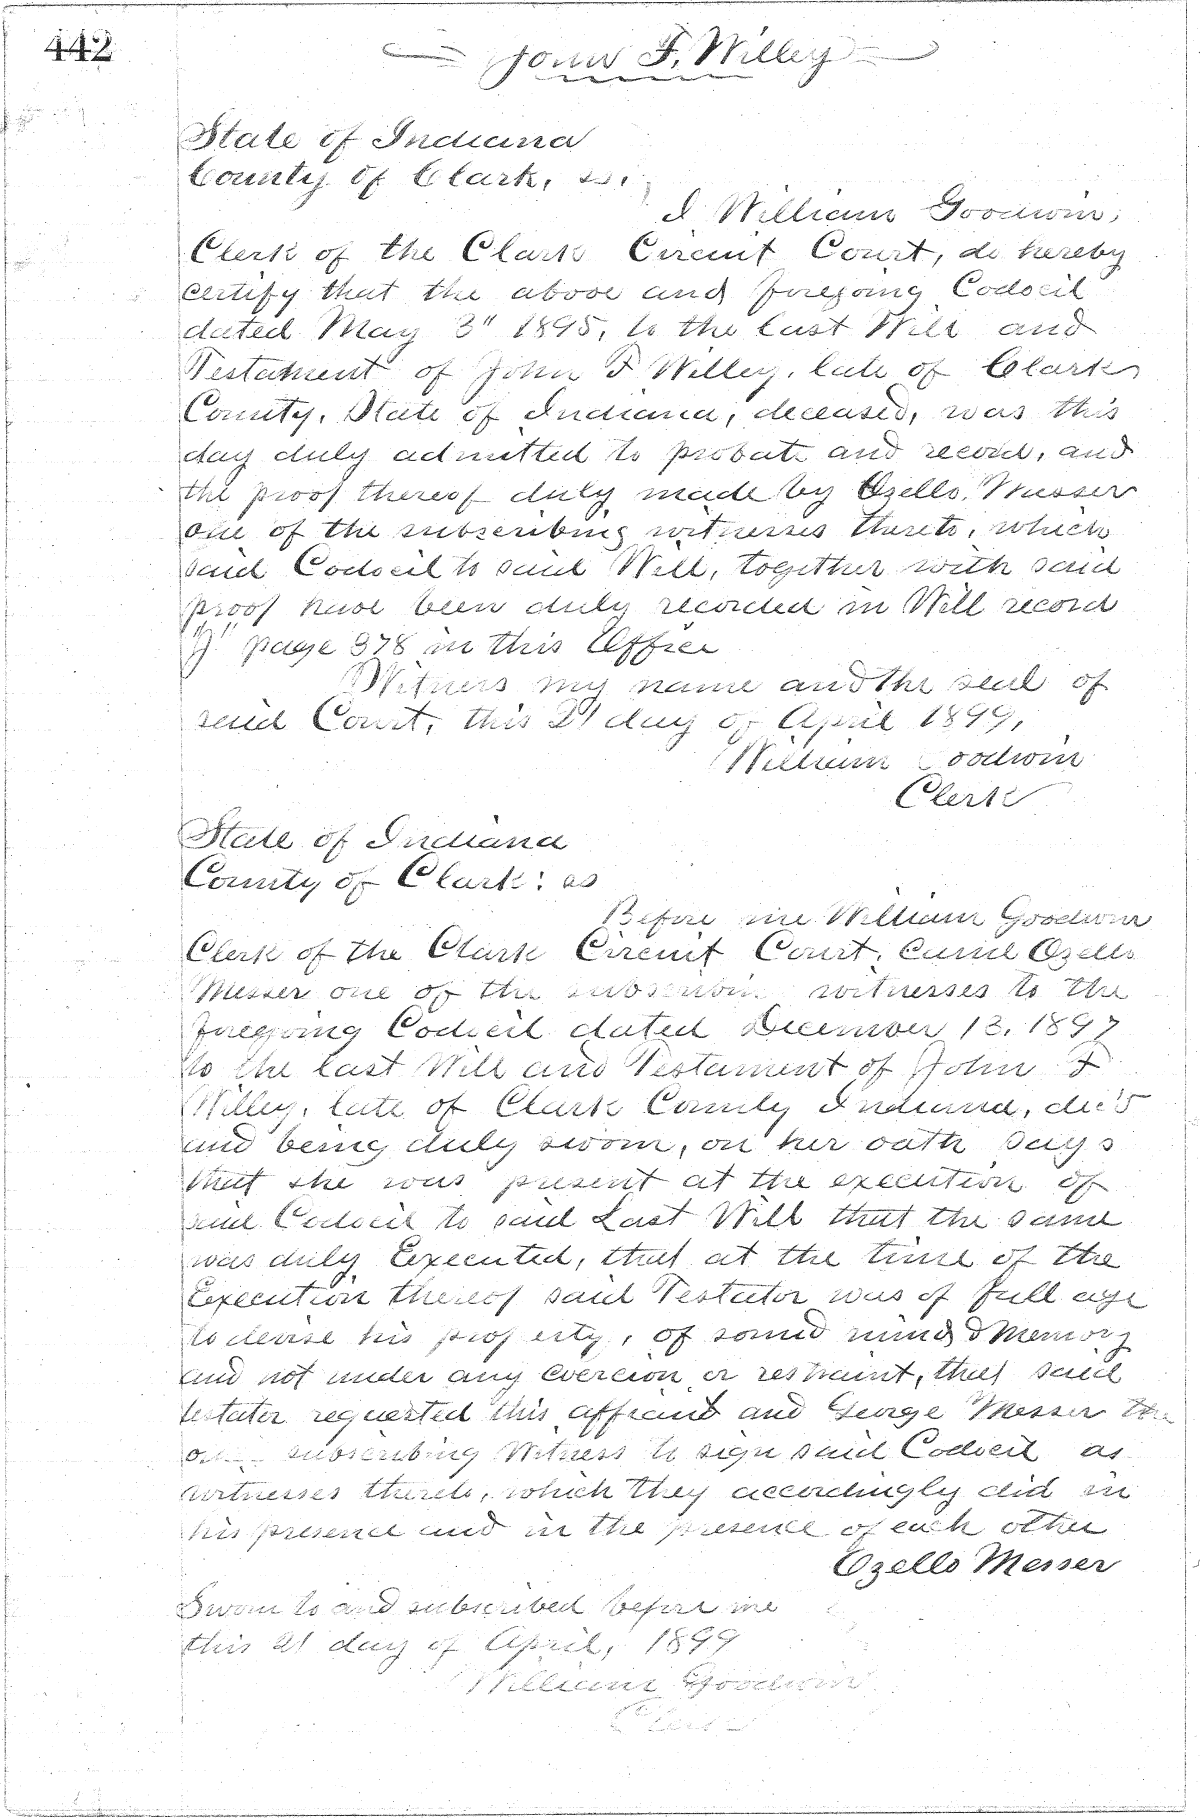 442
John F. Willey
State of Indiana
County of Clark, ss.
I William Goodwin,
Clerk of the Clark Circuit Court, do hereby
certify that the above and foregoing Codocil
dated May 3" 1895, to the last Will and
Testament of John F Willey, late of Clark
County, State of Indiana, deceased, was this
day duly admitted to probate and record, and
the proof thereof duly made by Ozello Musser
one of the subscribing witnesses thereto, which
said Codocil to said Will, together with said
proof have been duly recorded in Will record
"J" page 378 in this Office
Witness my name and the seal of
said Court, this 21 day of April 1899,
William Goodwin
Clerk
State of Indiana
County of Clark: ss
Before me William Goodwin
Clerk of the Clark Circuit Court, came Ozello
Messer one of the subscribing witnesses to the
foregoing Codocil dated December 13, 1897
to the last Will and Testament of John F
Willey, late of Clark County Indiana, dec'd
and being duly sworn, on her oath says
that she was present at the execution of
said Codocil to said Last Will that the same
was duly Executed, that at the time of the
Execution thereof said Testator was of full age
to devise his property, of sound mind & Memory
and not under any coercion or restraint, that said
testator requested this affiant and George Messer the
other subscribing Witness to sign said Codocil as
witnesses thereto, which they accordingly did in
his presence and in the presence of each other
Ozello Messer
Sworn to and subscribed before me
this 21 day of April, 1899
William Goodwin
Clerk